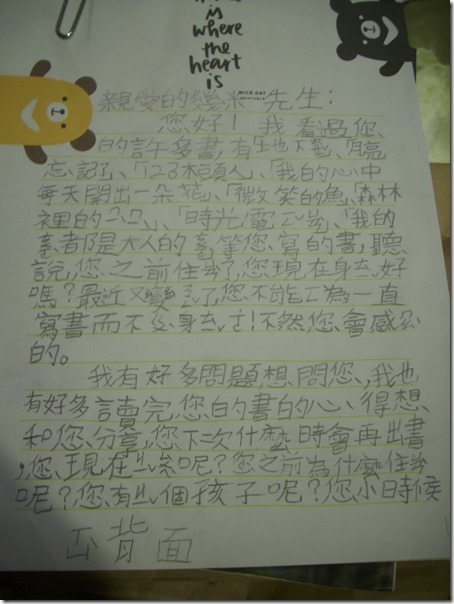 is
where
the
heart
is
NICE DAY
親愛的幾米先生:
您好!我看過您
的許多書,有
忘記了、「123木頭人」、「我的心中
每天開出一朵花」、「微笑的魚、「森林
裡的 」、「時光電 、「我的
都是大人的 等您寫的書,聽
說,您之前住 了,您現在身 好
嗎?最近又變 了,您不能 為一直
寫書而不 身 !不然您會感
的。
我有好多問題想問您,我也
有好多讀完您的書的心得想
和您分享,您下次什麼時會再出書
,您現在 呢?您之前為什麼住
呢?您有 個孩子呢?您小時候
背面